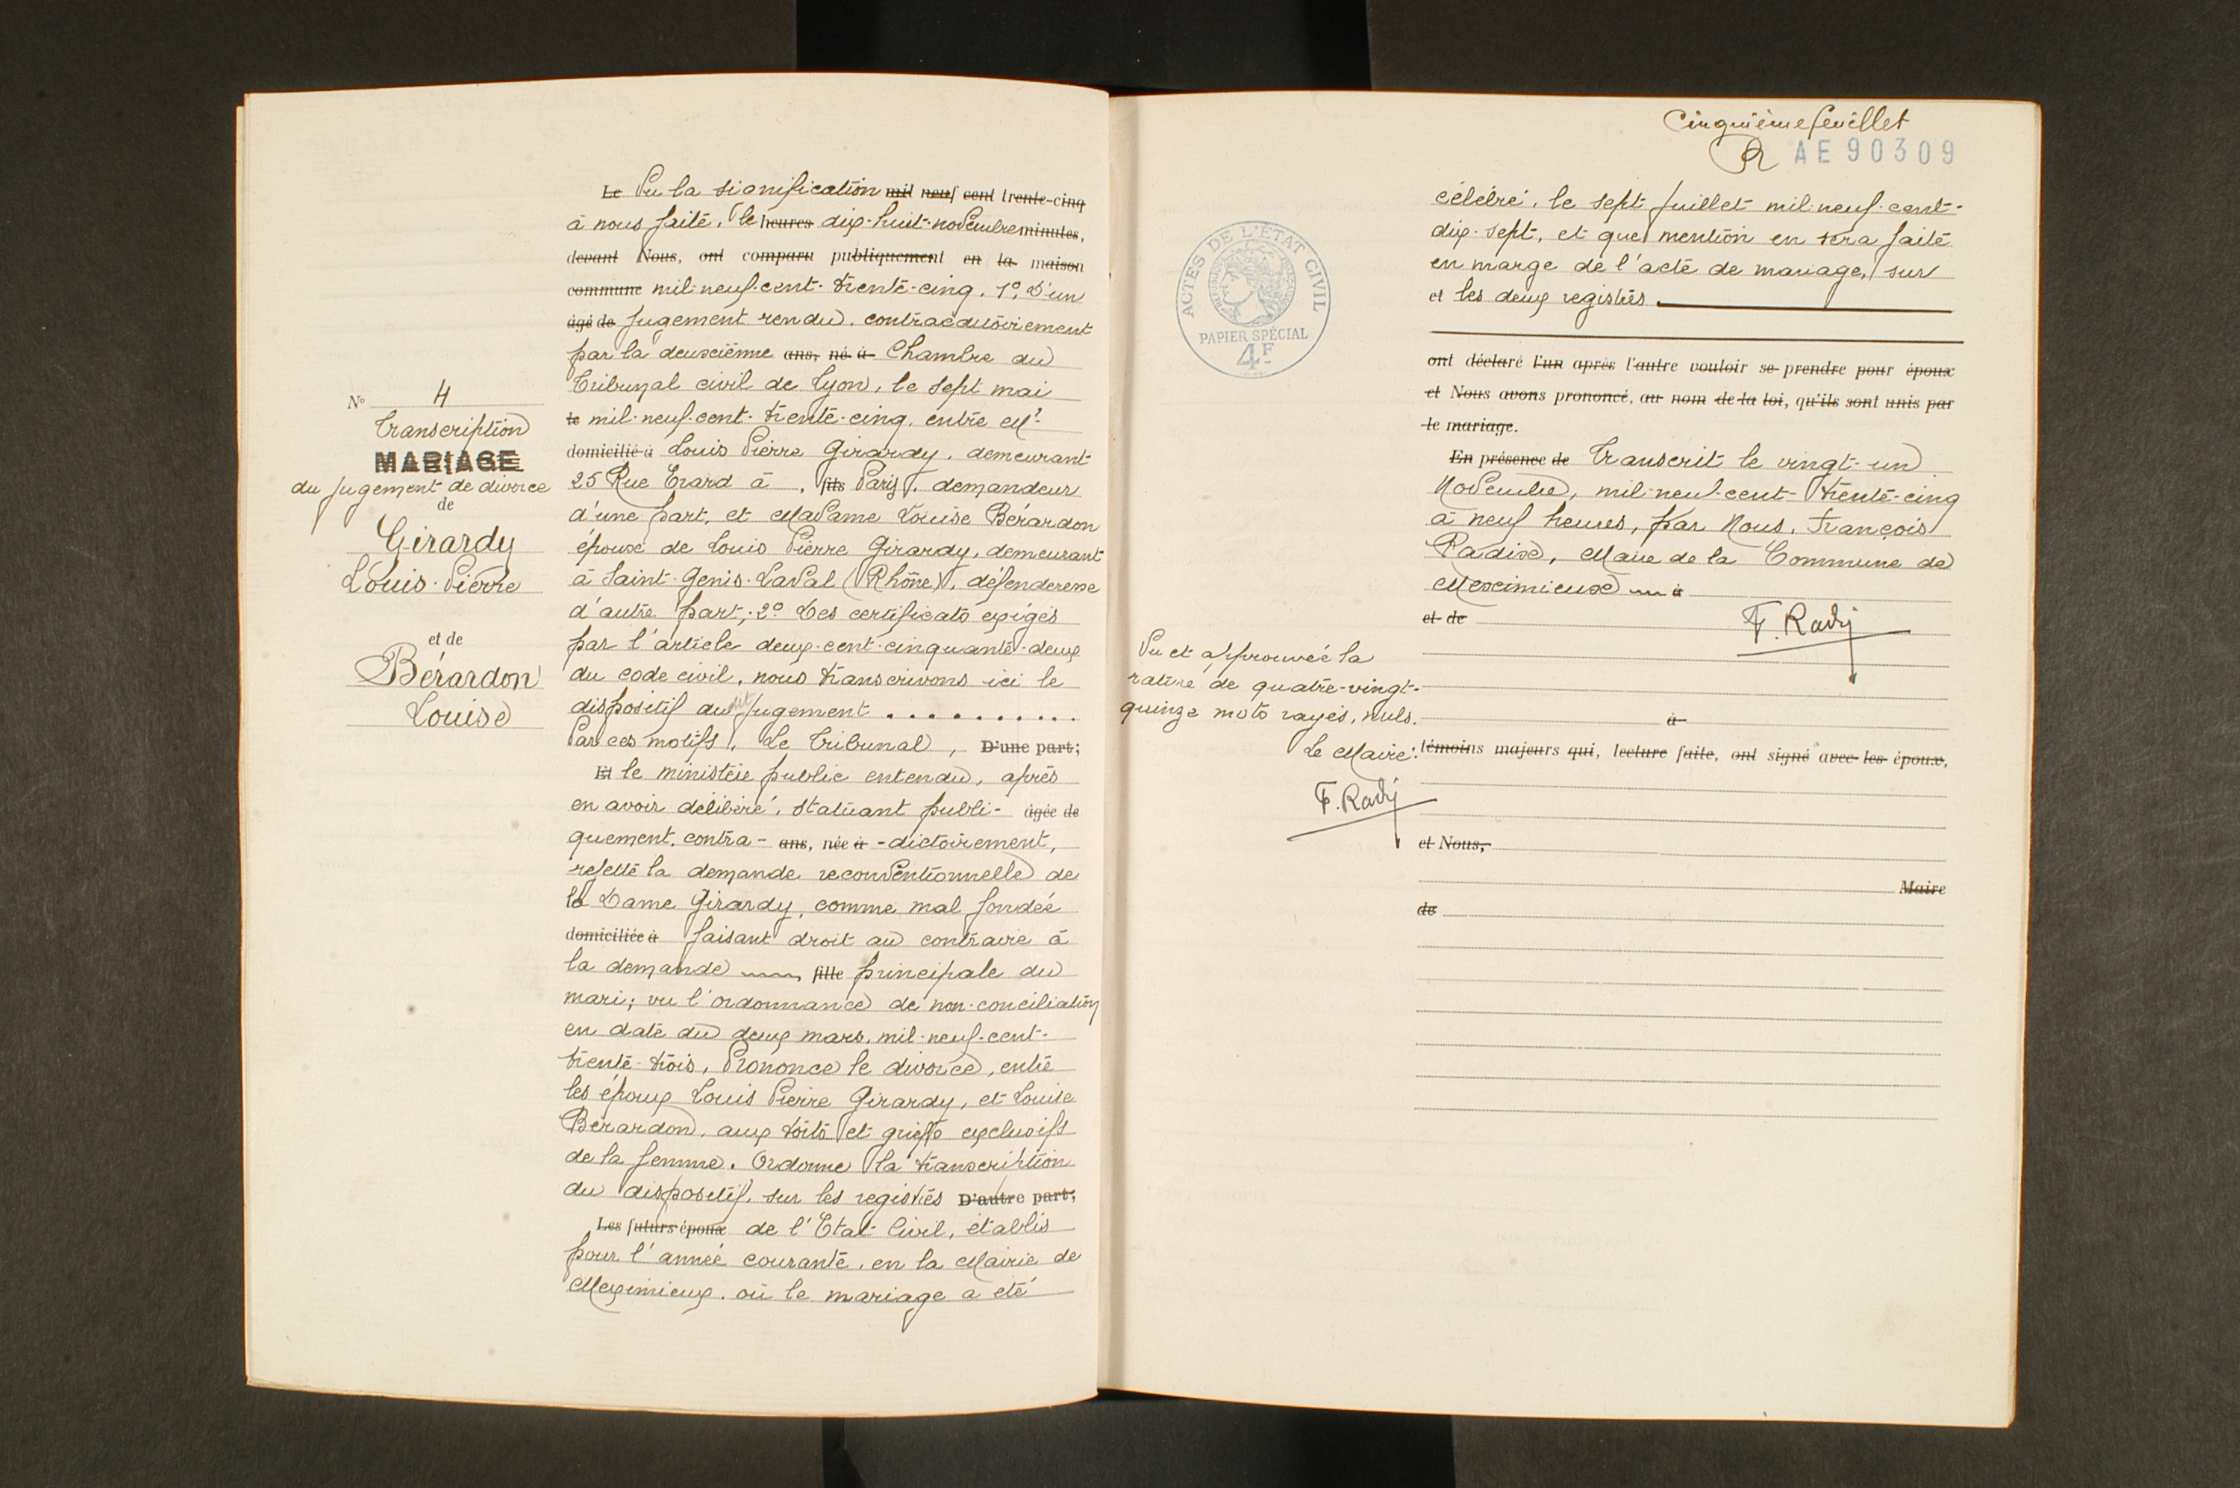 N° 4
Transcription
MARIAGE
du jugement de divorce
de
Girardy
Louis-Pierre
et de
Bérardon
Louise
Le Vu la signification mil neuf cent trente-cinq
à nous faite, le heures dix-huit-novembre minutes,
devant Nous, ont comparu publiquement en la maison
commune mil-neuf-cent-trente-cinq. 1° D'un
âgé de jugement rendu contradictoirement
par la deuxième ans, né à Chambre du
Tribunal civil de Lyon, le sept mai
le mil-neuf-cent-trente-cinq, entre Mr
domicilié à Louis Pierre Girardy, demeurant
25 Rue Erard à , fils Paris, demandeur
d'une part, et Madame Louise Bérardon
épouse de Louis Pierre Girardy, demeurant
à Saint-Genis-Laval (Rhône), défenderesse
d'autre part; 2° Des certificats exigés
par l'article deux-cent-cinquante-deux
du code civil, nous transcrivons ici le
dispositif dudit jugement . . . . . . . . . . .
Par ces motifs, Le Tribunal, D'une part;
Et le ministère public entendu, après
en avoir délibéré, statuant publi- âgée de
quement, contra- ans, née à -dictoirement,
rejette la demande reconventionnelle de
la Dame Girardy, comme mal fondée
domiciliée à faisant droit au contraire à
la demande fille principale du
mari; vu l'ordonnance de non-conciliation
en date du deux mars, mil-neuf-cent-
trente-trois, Prononce le divorce, entre
les époux Louis Pierre Girardy, et Louise
Bérardon, aux torts et griefs exclusifs
de la femme. Ordonne la transcription
du dispositif, sur les registres D'autre part;
Les futurs époux de l'Etat Civil, établis
pour l'année courante, en la Mairie de
Meximieux, où le mariage a été
Cinquième feuillet
AE 90309
ACTES DE L'ÉTAT CIVIL
PAPIER SPÉCIAL
4F
célébré, le sept Juillet mil-neuf-cent-
dix-sept, et que mention en sera faite
en marge de l'acte de mariage, sur
et les deux registres.
ont déclaré l'un après l'autre vouloir se prendre pour époux
et Nous avons prononcé, au nom de la loi, qu'ils sont unis par
le mariage.
En présence de Transcrit le vingt-un
Novembre, mil-neuf-cent-trente-cinq
à neuf heures, par Nous, François
Radix, Maire de la Commune de
Meximieux à
et de
F. Radix
à
témoins majeurs qui, lecture faite, ont signé avec les époux,
et Nous,
Maire
de
Vu et approuvée la
rature de quatre-vingt-
quinze mots rayés, nuls.
Le Maire:
F. Radix